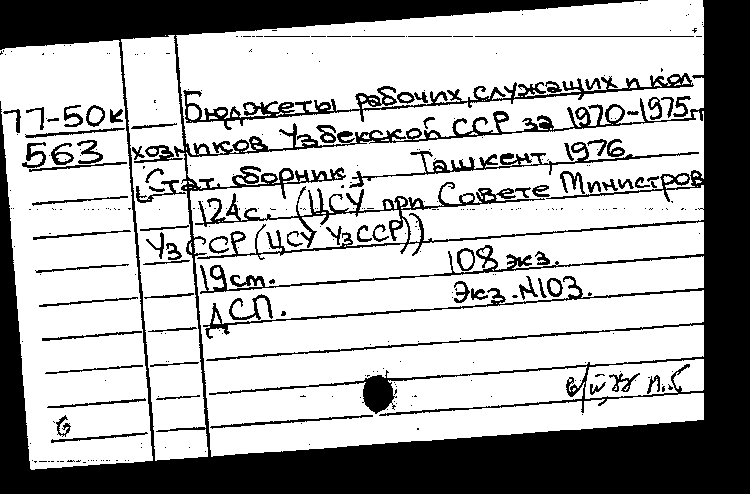 77-50к
563
Бюджеты рабочих, служащих и кол-
хозников Узбекской ССР за 1970-1975гг
[Стат. сборник]. Ташкент, 1976.
124с. (ЦСУ при Совете Министров
УзССР (ЦСУ УзССР)).
19см. 108 экз.
Экз. №103.
ДСП.